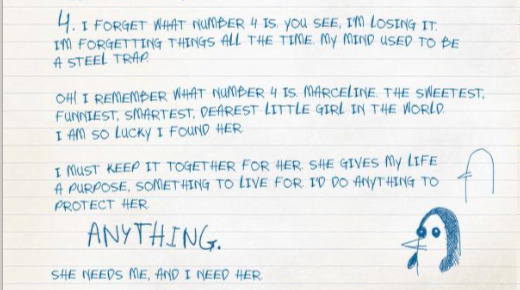 4. I FORGET WHAT NUMBER 4 IS. YOU SEE, I'M LOSING IT.
I'M FORGETTING THINGS ALL THE TIME. MY MIND USED TO BE
A STEEL TRAP.
OH! I REMEMBER WHAT NUMBER 4 IS. MARCELINE. THE SWEETEST,
FUNNIEST, SMARTEST, DEAREST LITTLE GIRL IN THE WORLD.
I AM SO LUCKY I FOUND HER.
I MUST KEEP IT TOGETHER FOR HER. SHE GIVES MY LIFE
A PURPOSE, SOMETHING TO LIVE FOR. I'D DO ANYTHING TO
PROTECT HER.
ANYTHING.
SHE NEEDS ME, AND I NEED HER.